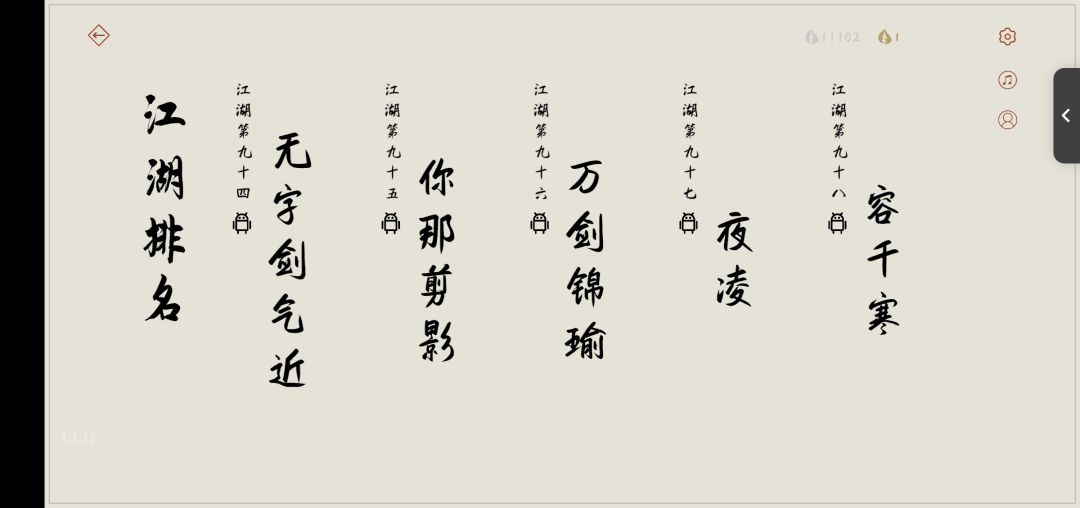 11102
1
江湖排名
江湖第九十四
无字剑气近
江湖第九十五
你那剪影
江湖第九十六
万剑锦瑜
江湖第九十七
夜凌
江湖第九十八
容千寒
1.1.12